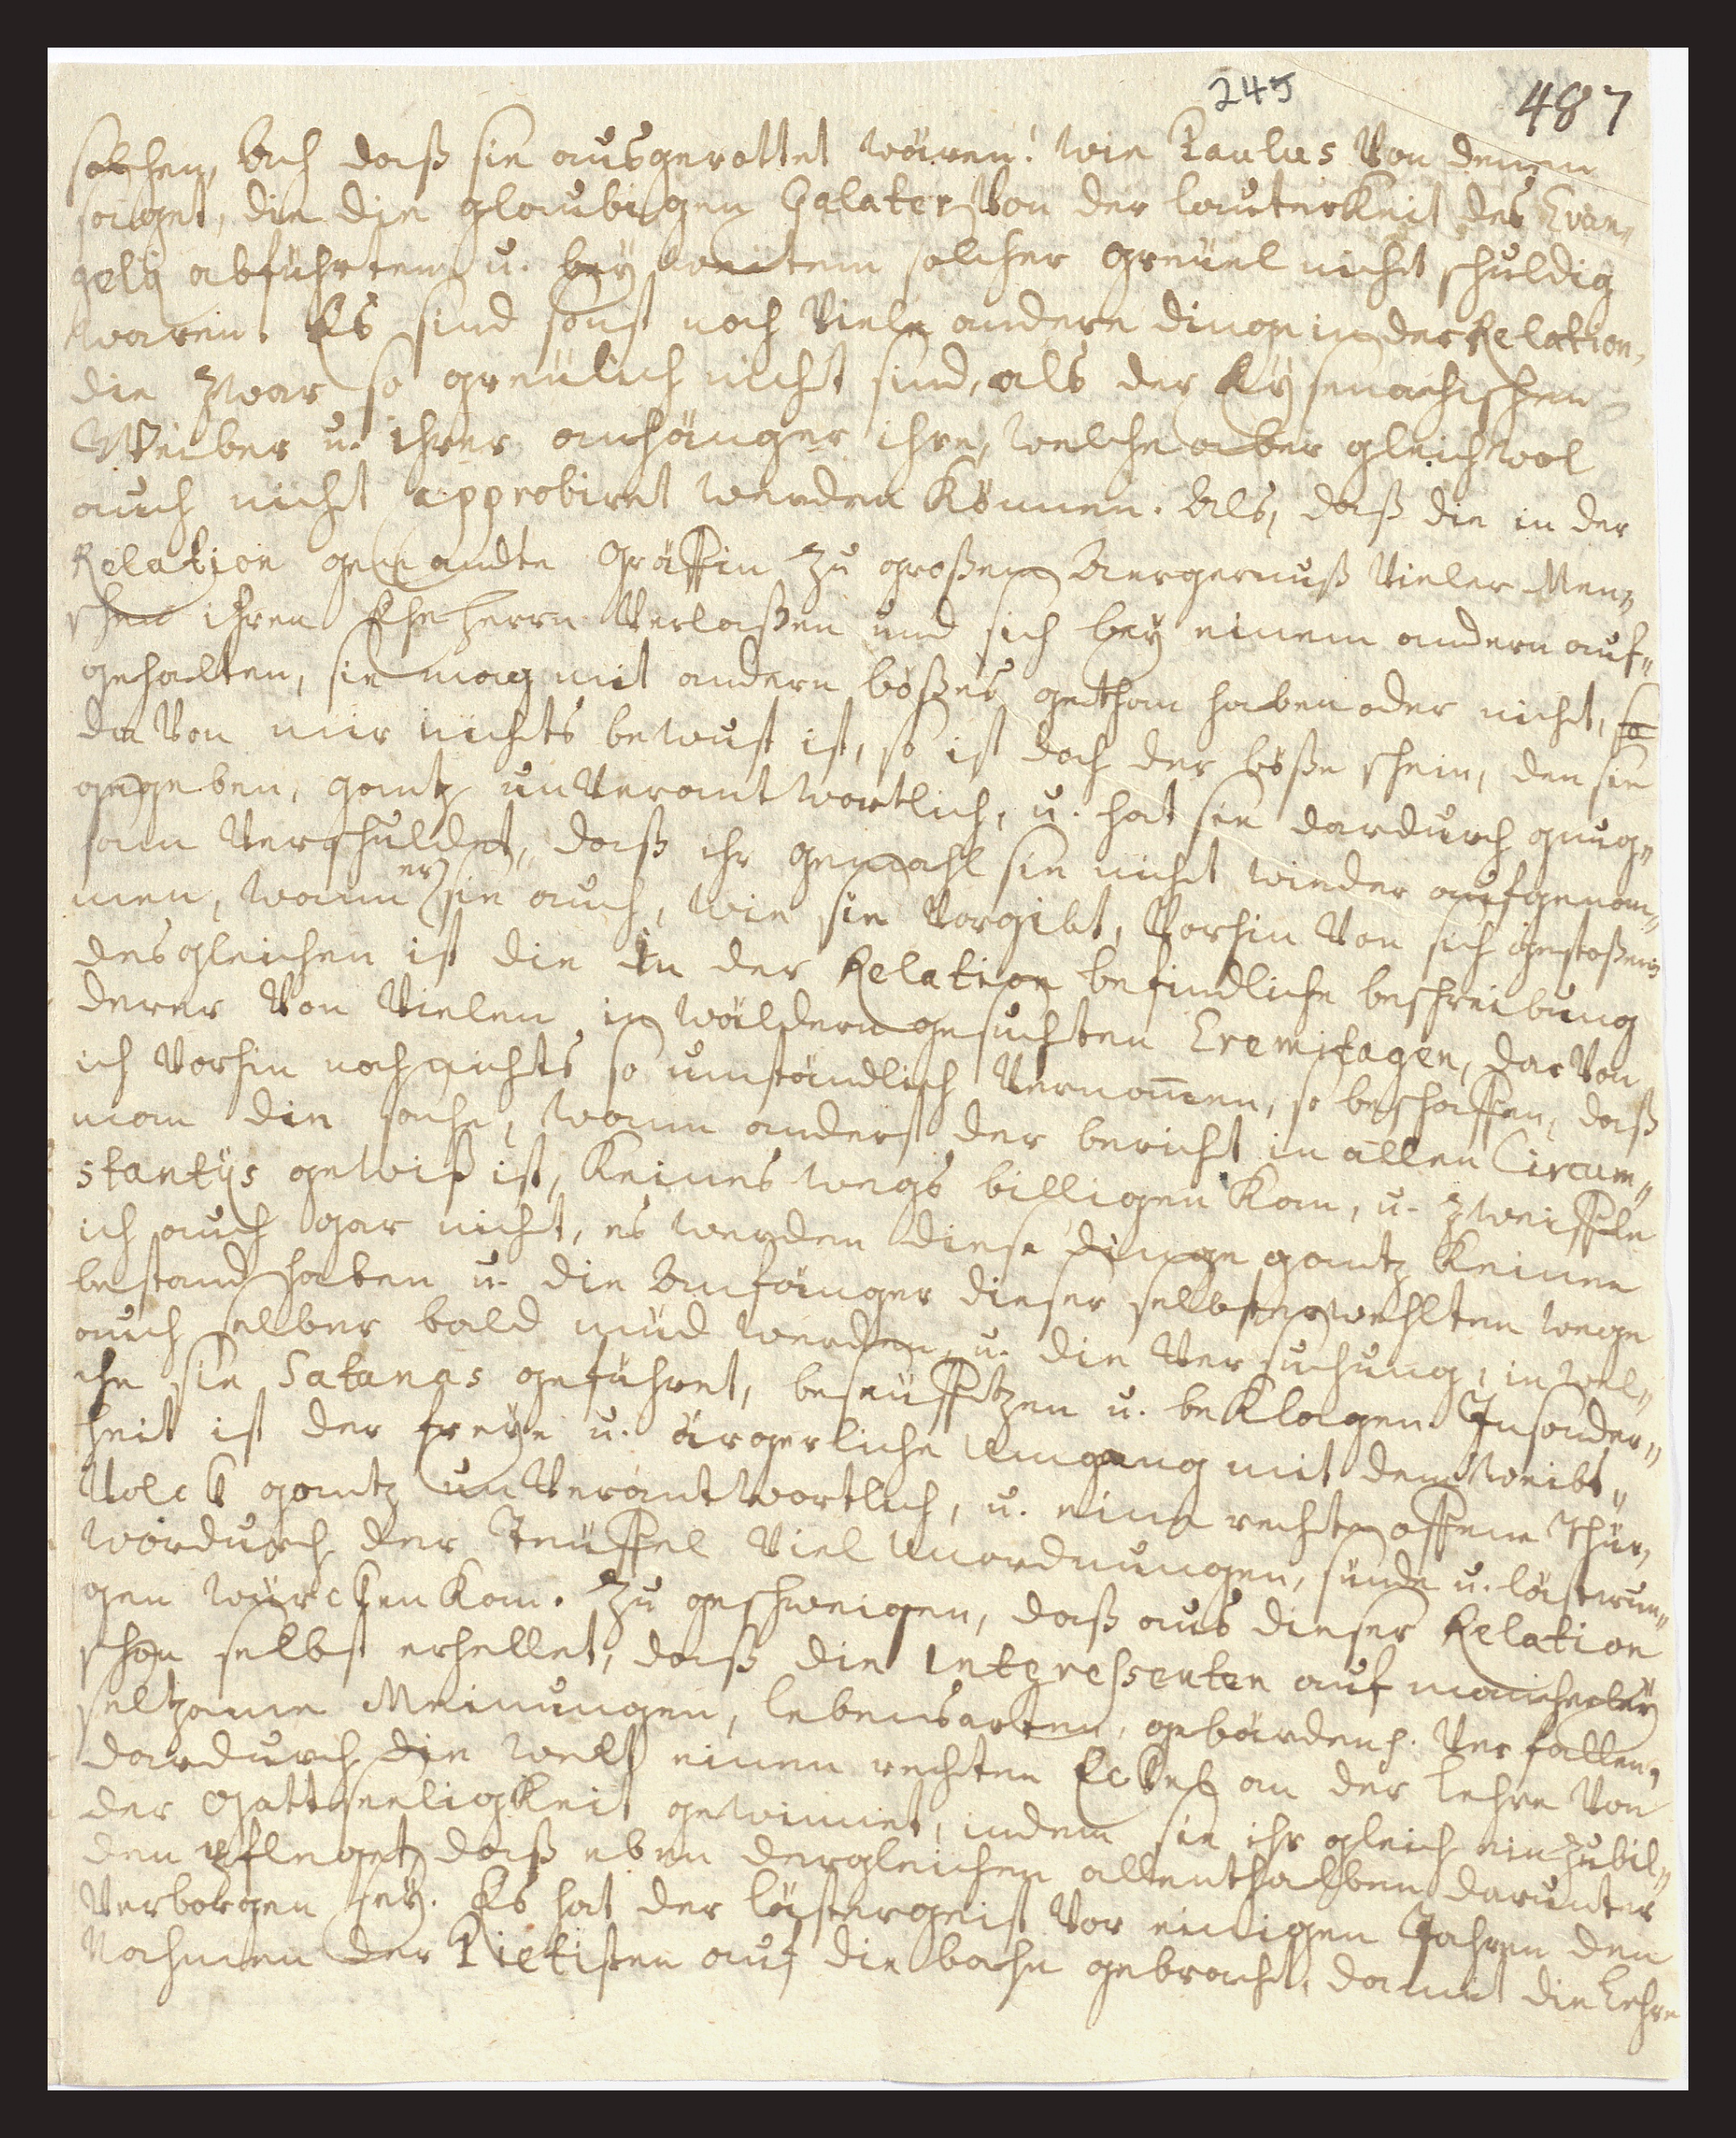 245
487
solchen, Ach daß sie ausgerottet wären! wie Paulus Von denen
saget, die die glaubigen Galater Von der lauterkeit des Evan„
gelij abführten, u. bey weitem solcher greüel nicht schuldig
waren. Es sind sonst noch Viele andere dinge in der Relation,
die zwar so greülich nicht sind, als der Eysenachischen
Weiber u. ihrer anhänger ihre, welche aber gleichwol
auch nicht approbiret werden können. Als, daß die in der
Relation genandte Gräffin zu großem Aergernuß Vieler Men„
schen ihren Eheherrn Verlaßen und sich bey einem andern auf„
gehalten, sie mag mit andern bößes gethan haben oder nicht, so
da Von mir nichts bewust ist, so ist doch der böße schein, den sie
gegeben, gantz unVerantwortlich, u. hat sie dardurch gnug„
sam Verschuldet, daß ihr gemahl sie nicht wieder aufgenom„
men, wann er sie auch, wie sie Vorgibt, Vorhin Von sich gestoßen
desgleichen ist die in der Relation befindliche beschreibung
derer Von Vielen in wäldern gesuchten Eremitagen, dar Von
ich Vorhin noch nichts so umständlich Vernom̄en, so beschaffen, daß
man die sache, wann anders der bericht in allen Circum„
stantijs gewiß ist, keines wegs billigen kan, u. zweiffle
ich auch gar nicht, es werden diese dinge gantz keinen
bestand haben u. die Anfänger dieser selbsterwehlten wege
auch selber bald müd werden, u. die Versuchung, in wel„
che sie Satanas geführet, beseüfftzen u. beklagen. Insonder„
heit ist der freye u. ärgerliche Umgang mit dem Weibs„
Volck gantz unVerantwortlich, u. eine rechte offene Thür,
wordurch der Teüffel Viel Unordnungen, sünde u. lästerun„
gen würcken kan. Zu geschweigen, daß aus dieser Relation
schon selbst erhellet, daß die Interessenten auf mancherley
seltzame Meinungen, lebensarten, gebärden p. Verfallen,
dardurch die welt einen rechten Eckel an der lehre Von
der Gottseeligkeit gewinnet, indem sie ihr gleich einzubil„
den pfleget, daß eben dergleichen allenthalben darunter
Verborgen sey. Es hat der lästergeist Vor einigen Jahren den
Nahmen der Pietisten auf die bahn gebracht, damit die Lehre